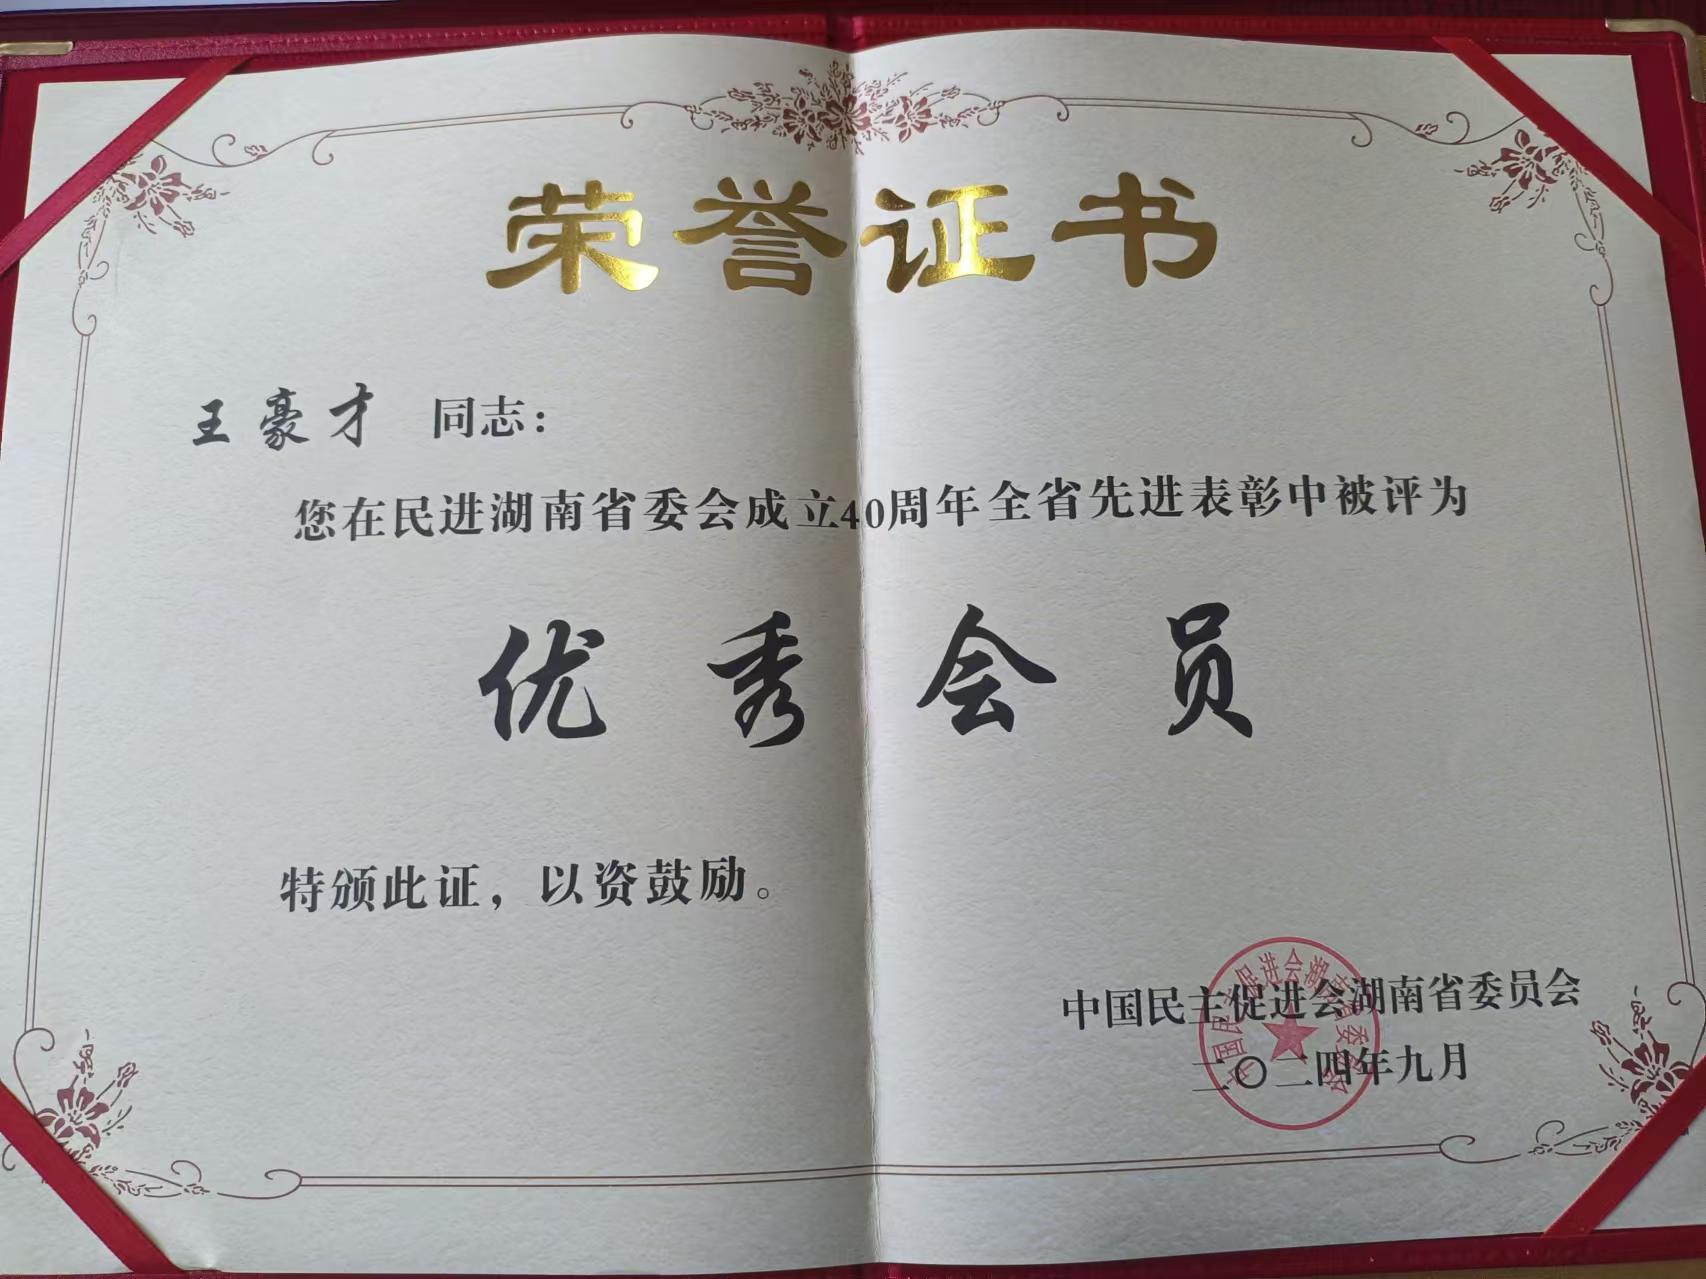 荣誉证书
王豪才 同志：
您在民进湖南省委会成立40周年全省先进表彰中被评为
优秀会员
特颁此证，以资鼓励。
中国民主促进会湖南省委员会
二〇二四年九月
中国民主促进会湖南省委员会